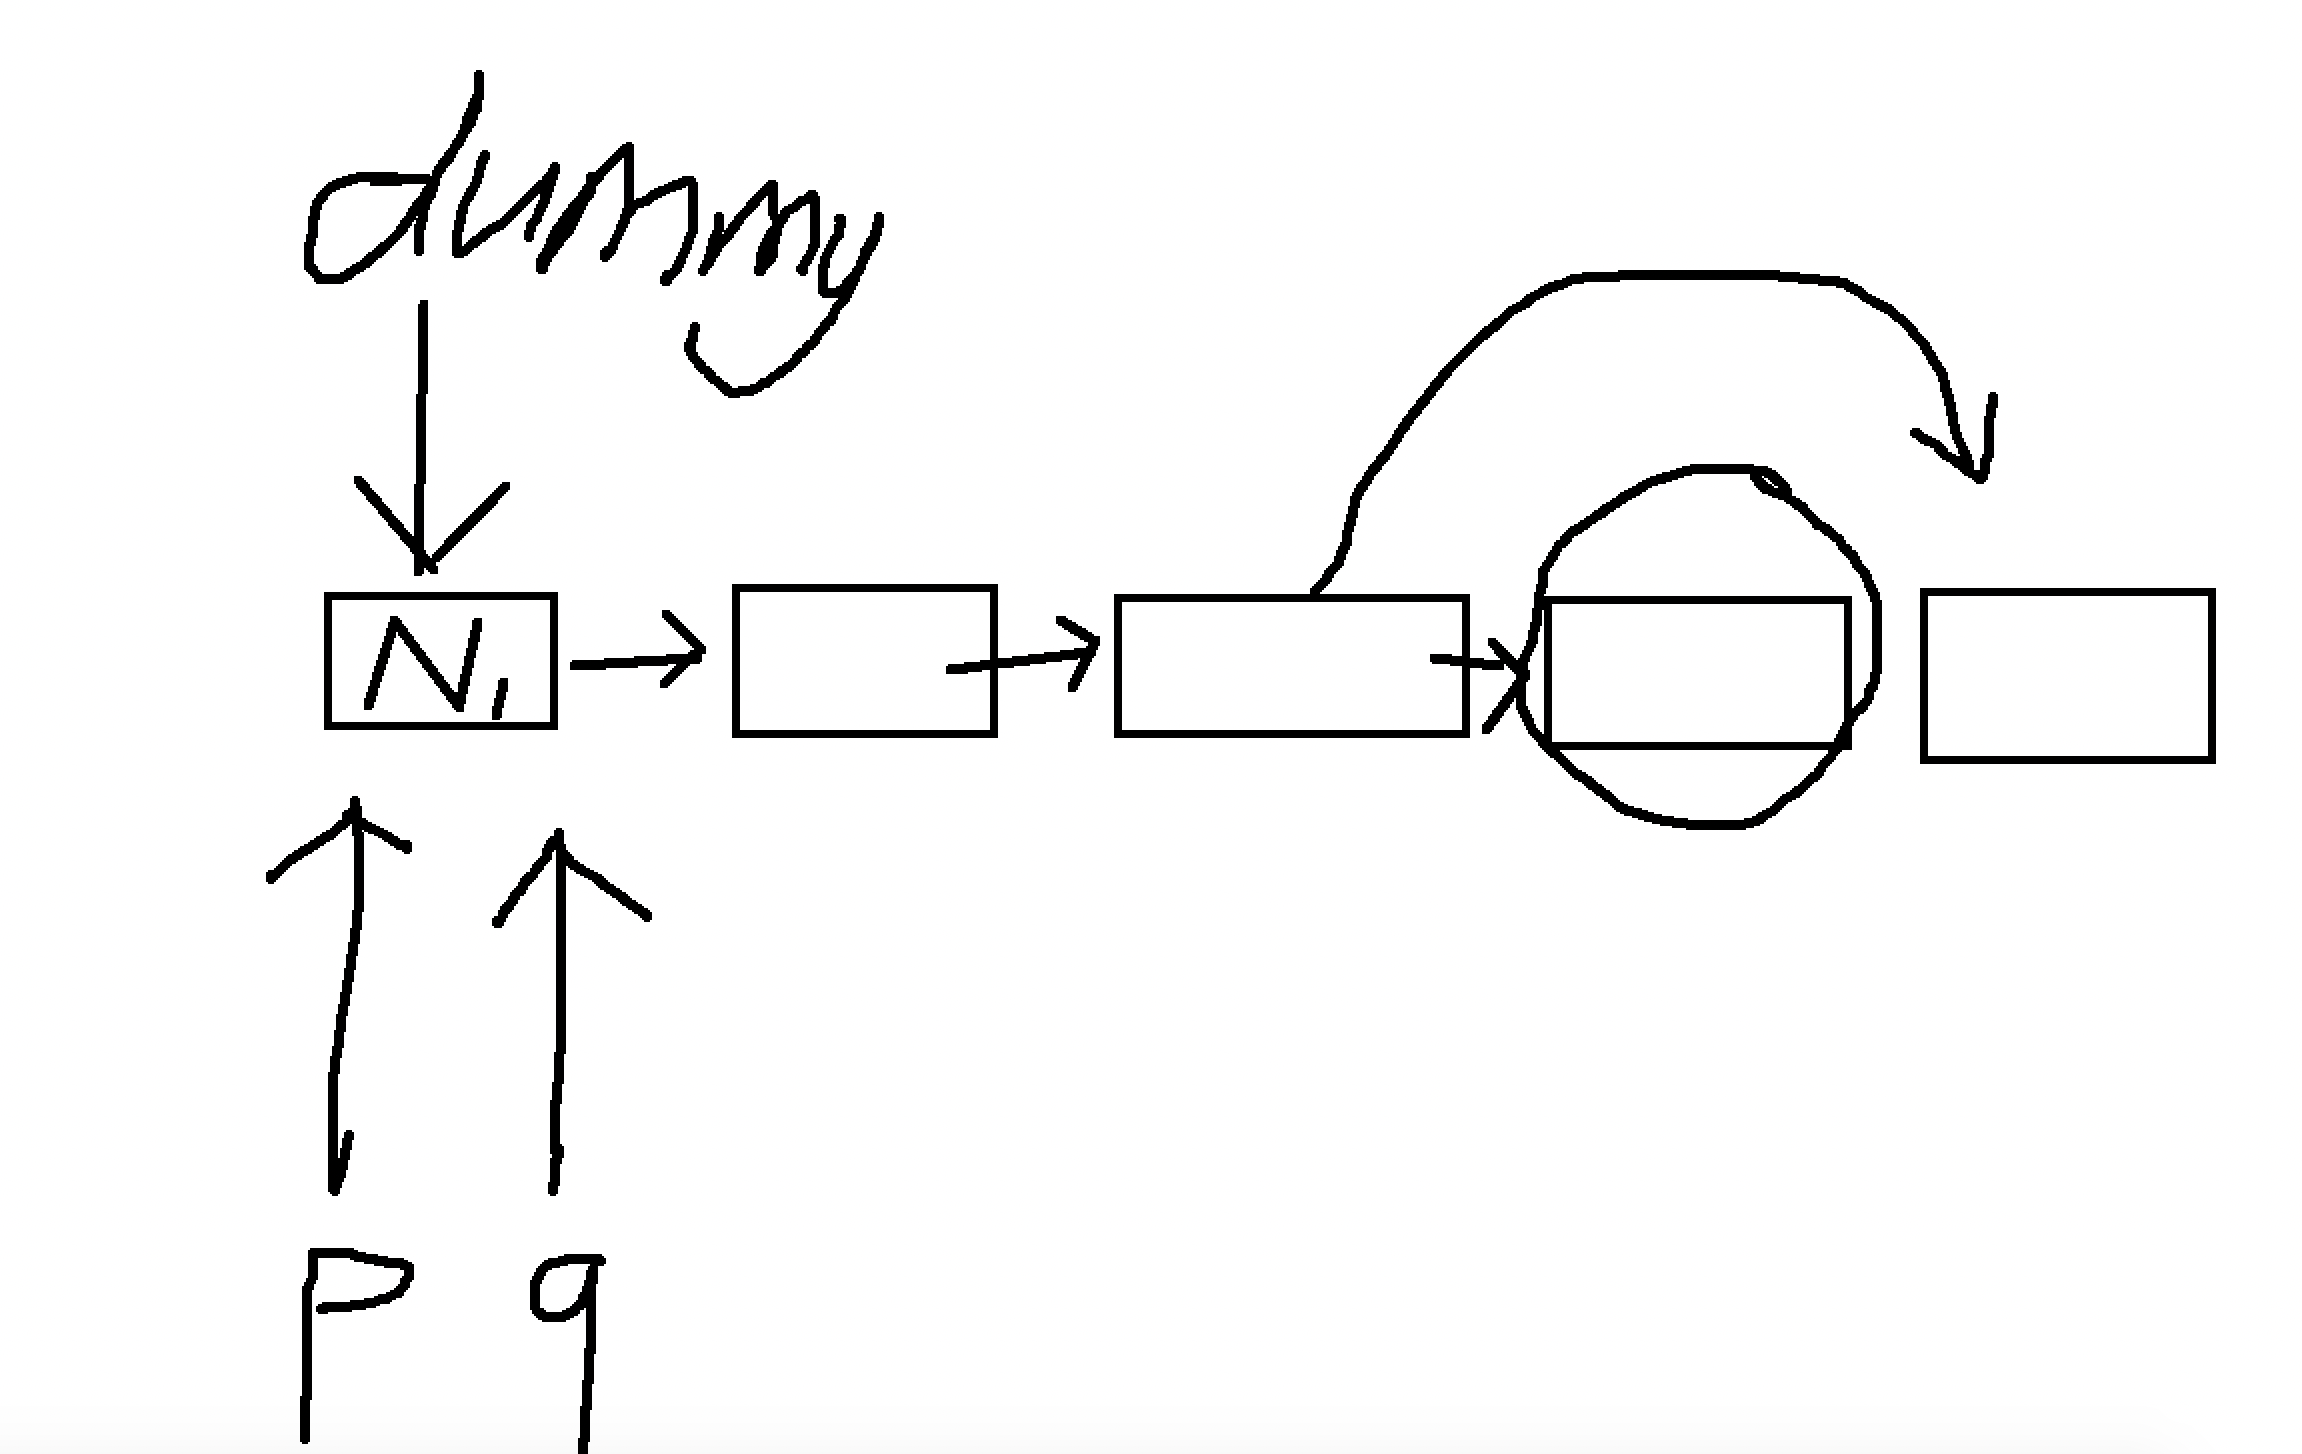 dummy
N1
p q